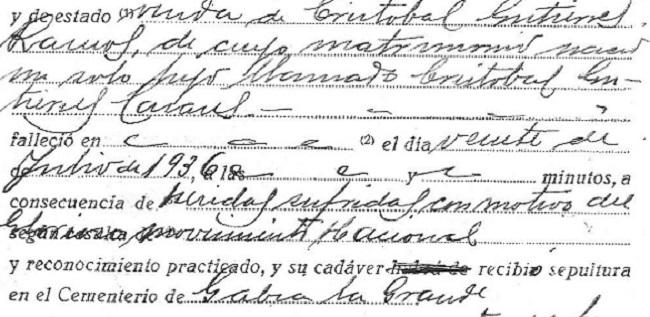 y de estado (1) viuda de Cristobal Gutierrez
Ramos, de cuyo matrimonio nació
un solo hijo llamado Cristobal Gu-
tierrez
falleció en (2) el día veinte de
Julio de 1936, a las y minutos, a
consecuencia de heridas sufridas con motivo del
Glorioso movimiento Nacional
y reconocimiento practicado, y su cadáver habrá de recibió sepultura
en el Cementerio de Gabia la Grande